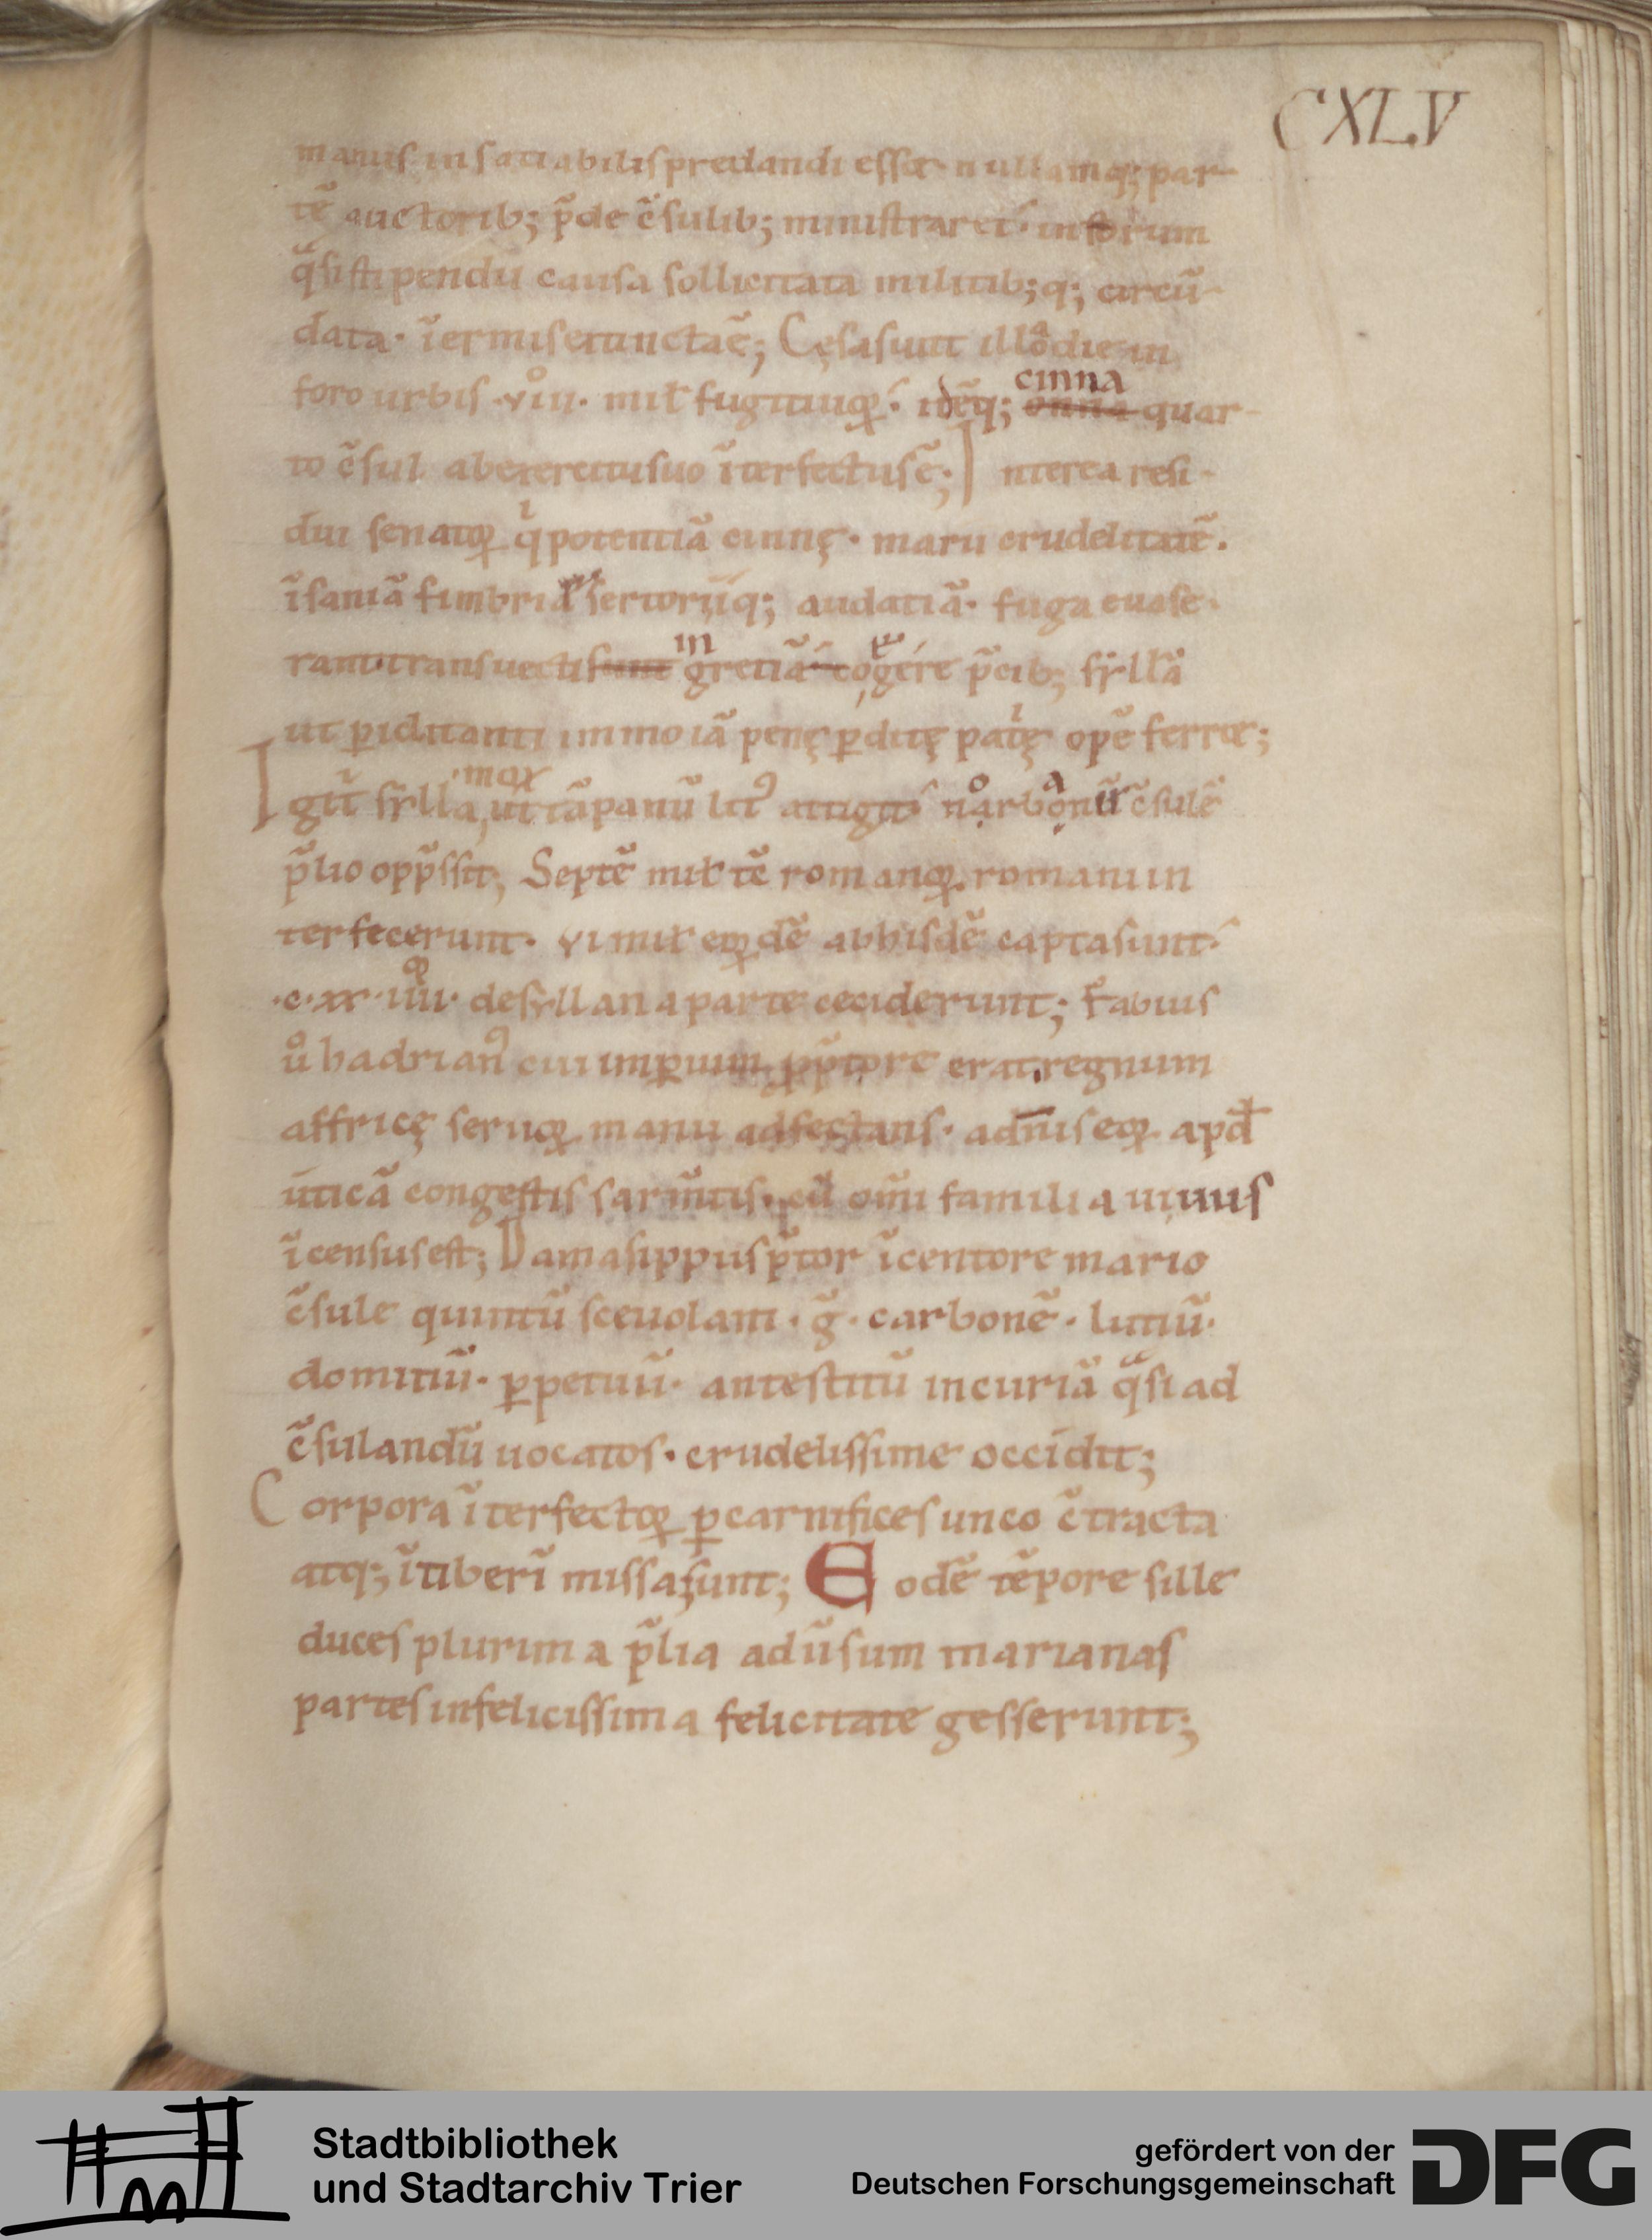 CXLV
manus insatiabilis predandi esset· nullamq; par-
tē auctorib; p̄de c̄sulib; ministraret· in forum
qͣsi stipendii causa sollicitata militib;q; circū-
data· īermis et iunctā ē; Cęsa sunt illo die in
foro urbis ·viii· mil fugitiuoꝝ· idēq; cinna quar-
to c̄sul ab exercitu suo īterfectus ē; Interea resi-
dui senatoꝝ qͥ potentiā cinnę· marii crudelitatē·
īsaniā fimbrię sertoriiq; audatiā· fuga euase-
rant· transuecti in gretiā cogere p̄cib; sẏllā
ut ꝑiclitanti immo iā penę ꝑditę patͥę opē ferret;
Igit̄ sẏlla mox ut cāpanū litꝰ attigit noͬrbanū c̄sulē
p̄lio opp̄ssit; Septē mil tē romanoꝝ· romani in
terfecerunt· vi mil eoꝝdē ab hisdē capta sunt·
·c·xx·iiii· de sẏllana parte ceciderunt; Fabius
uͦ hadrianꝰ cui imꝑium ꝓp̄tore erat· regnum
affricę seruoꝝ manu adfectans· ad̄nis eoꝝ apd̄
uticā congestis sarm̄tis· cū om̄i familia uiuus
īcensus est; Damasippus p̄tor īcentore mario
c̄sule quintū sceuolam· ḡ· carbonē· lutiū·
domitiū· ꝑpetuū· antestitū in curiā qͣsi ad
c̄sulandū uocatos· crudelissime occidit;
Corpora īterfectoꝝ ꝑ carnifices unco c̄tracta
atq; ī tiberī missa sunt; Eodē tēpore sille
duces plurima p̄lia adūsum marianas
partes infelicissima felicitate gesserunt;
Stadtbibliothek
und Stadtarchiv Trier
gefördert von der
Deutschen Forschungsgemeinschaft
DFG